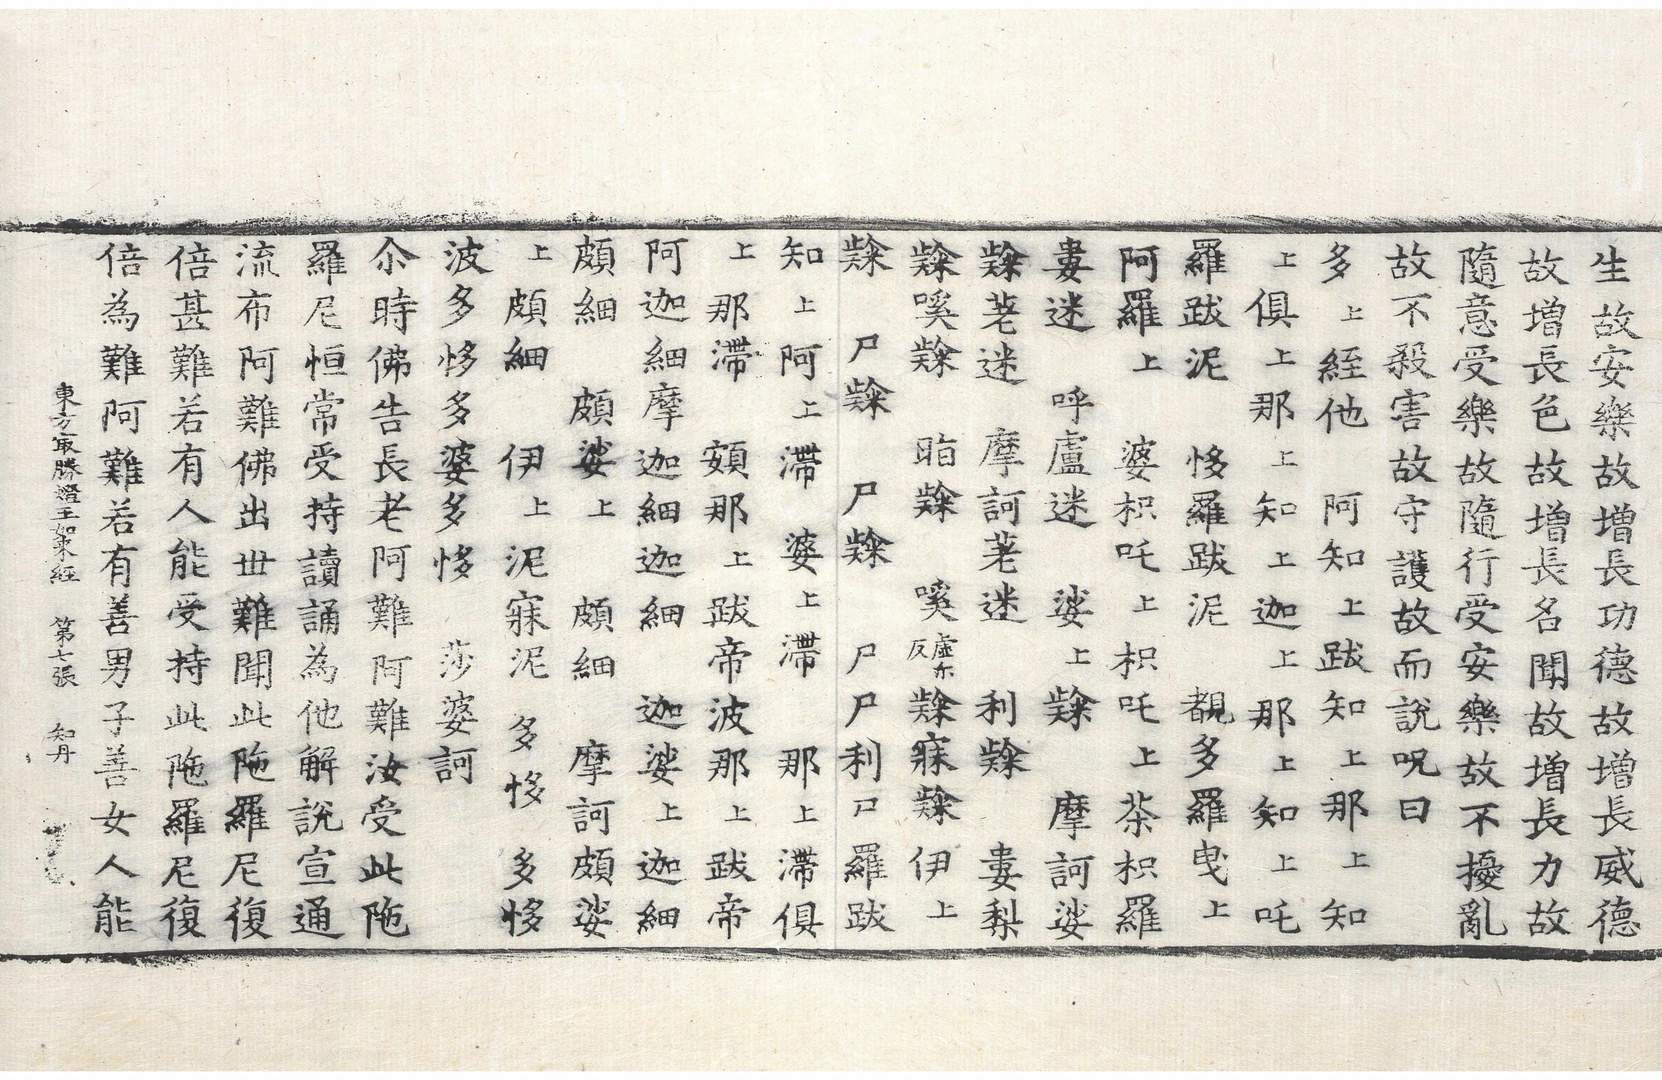 生故安樂故增長功德故增長威德
故增長色故增長名聞故增長力故
隨意受樂故隨行受安樂故不擾亂
故不殺害故守護故而說呪曰
多上絰他　阿知上跋知上那上知
上俱上那上知上迦上那上知上吒
羅跋泥　恀羅跋泥　覩多羅曳上
阿羅上　婆枳吒上枳吒上茶枳羅
婁迷　呼盧迷　娑上𪎮　摩訶娑
𪎮荖迷　摩訶荖迷　利𪎮　婁梨
嗘　伊上
尸　尸　尸尸利尸羅跋
知上阿上滯　婆上滯　那上滯俱
上那滯　頞那上跋帝波那上跋帝
阿迦細摩迦細迦細　迦娑上迦細
頗細　頗娑上　頗細　摩訶頗娑
上頗細　伊上泥寐泥　多恀　多恀
波多恀多婆多恀　莎婆訶
尒時佛告長老阿難阿難汝受此陁
羅尼恒常受持讀誦為他解說宣通
流布阿難佛出世難聞此陁羅尼復
倍甚難若有人能受持此陁羅尼復
倍為難阿難若有善男子善女人能
東方最勝燈王如来經　第七張　知丹